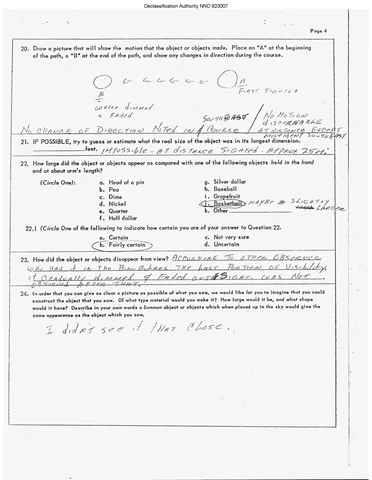 Declassification Authority NND 923007
Page 4
20. Draw a picture that will show the motion that the object or objects made. Place an "A" at the beginning
of the path, a "B" at the end of the path, and show any changes in direction during the course.
B
WHERE DIMMED
& FADED
A
FIRST SIGHTED
SOUTHEAST
NO MOTION
DISCERNABLE
AT DISTANCE EXCEPT
MOVEMENT SOUTHEAST
NO CHANGE OF DIRECTION NOTED IN COURSE
21. IF POSSIBLE, try to guess or estimate what the real size of the object was in its longest dimension.
feet. IMPOSSIBLE - AT DISTANCE SIGHTED - APPROX 25 MI.
22. How large did the object or objects appear as compared with one of the following objects held in the hand
and at about arm's length?
(Circle One):
a. Head of a pin
b. Pea
c. Dime
d. Nickel
e. Quarter
f. Half dollar
g. Silver dollar
h. Baseball
i. Grapefruit
j. Basketball MAYBE SLIGHTLY
LARGER
k. Other
22.1 (Circle One of the following to indicate how certain you are of your answer to Question 22.
a. Certain
b. Fairly certain
c. Not very sure
d. Uncertain
23. How did the object or objects disappear from view? ACCORDING TO OTHER OBSERVER
WHO HAD IT IN THE BINOCULARS THE LAST PORTION OF VISIBILITY,
IT GRADUALLY DIMMED & FADED OUT SIGHT. WAS NOT
OBSERVED AFTER THAT.
24. In order that you can give as clear a picture as possible of what you saw, we would like for you to imagine that you could
construct the object that you saw. Of what type material would you make it? How large would it be, and what shape
would it have? Describe in your own words a common object or objects which when placed up in the sky would give the
same appearance as the object which you saw.
I didn't see it that close.